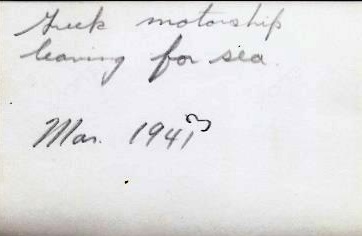 Greek motorship
leaving for sea.
Mar. 1941